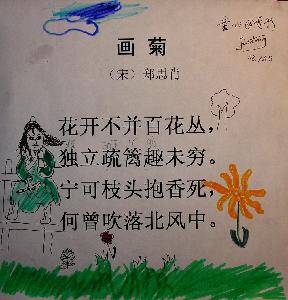 画菊
（宋）郑思肖
花开不并百花丛，
独立疏篱趣未穷。
宁可枝头抱香死，
何曾吹落北风中。